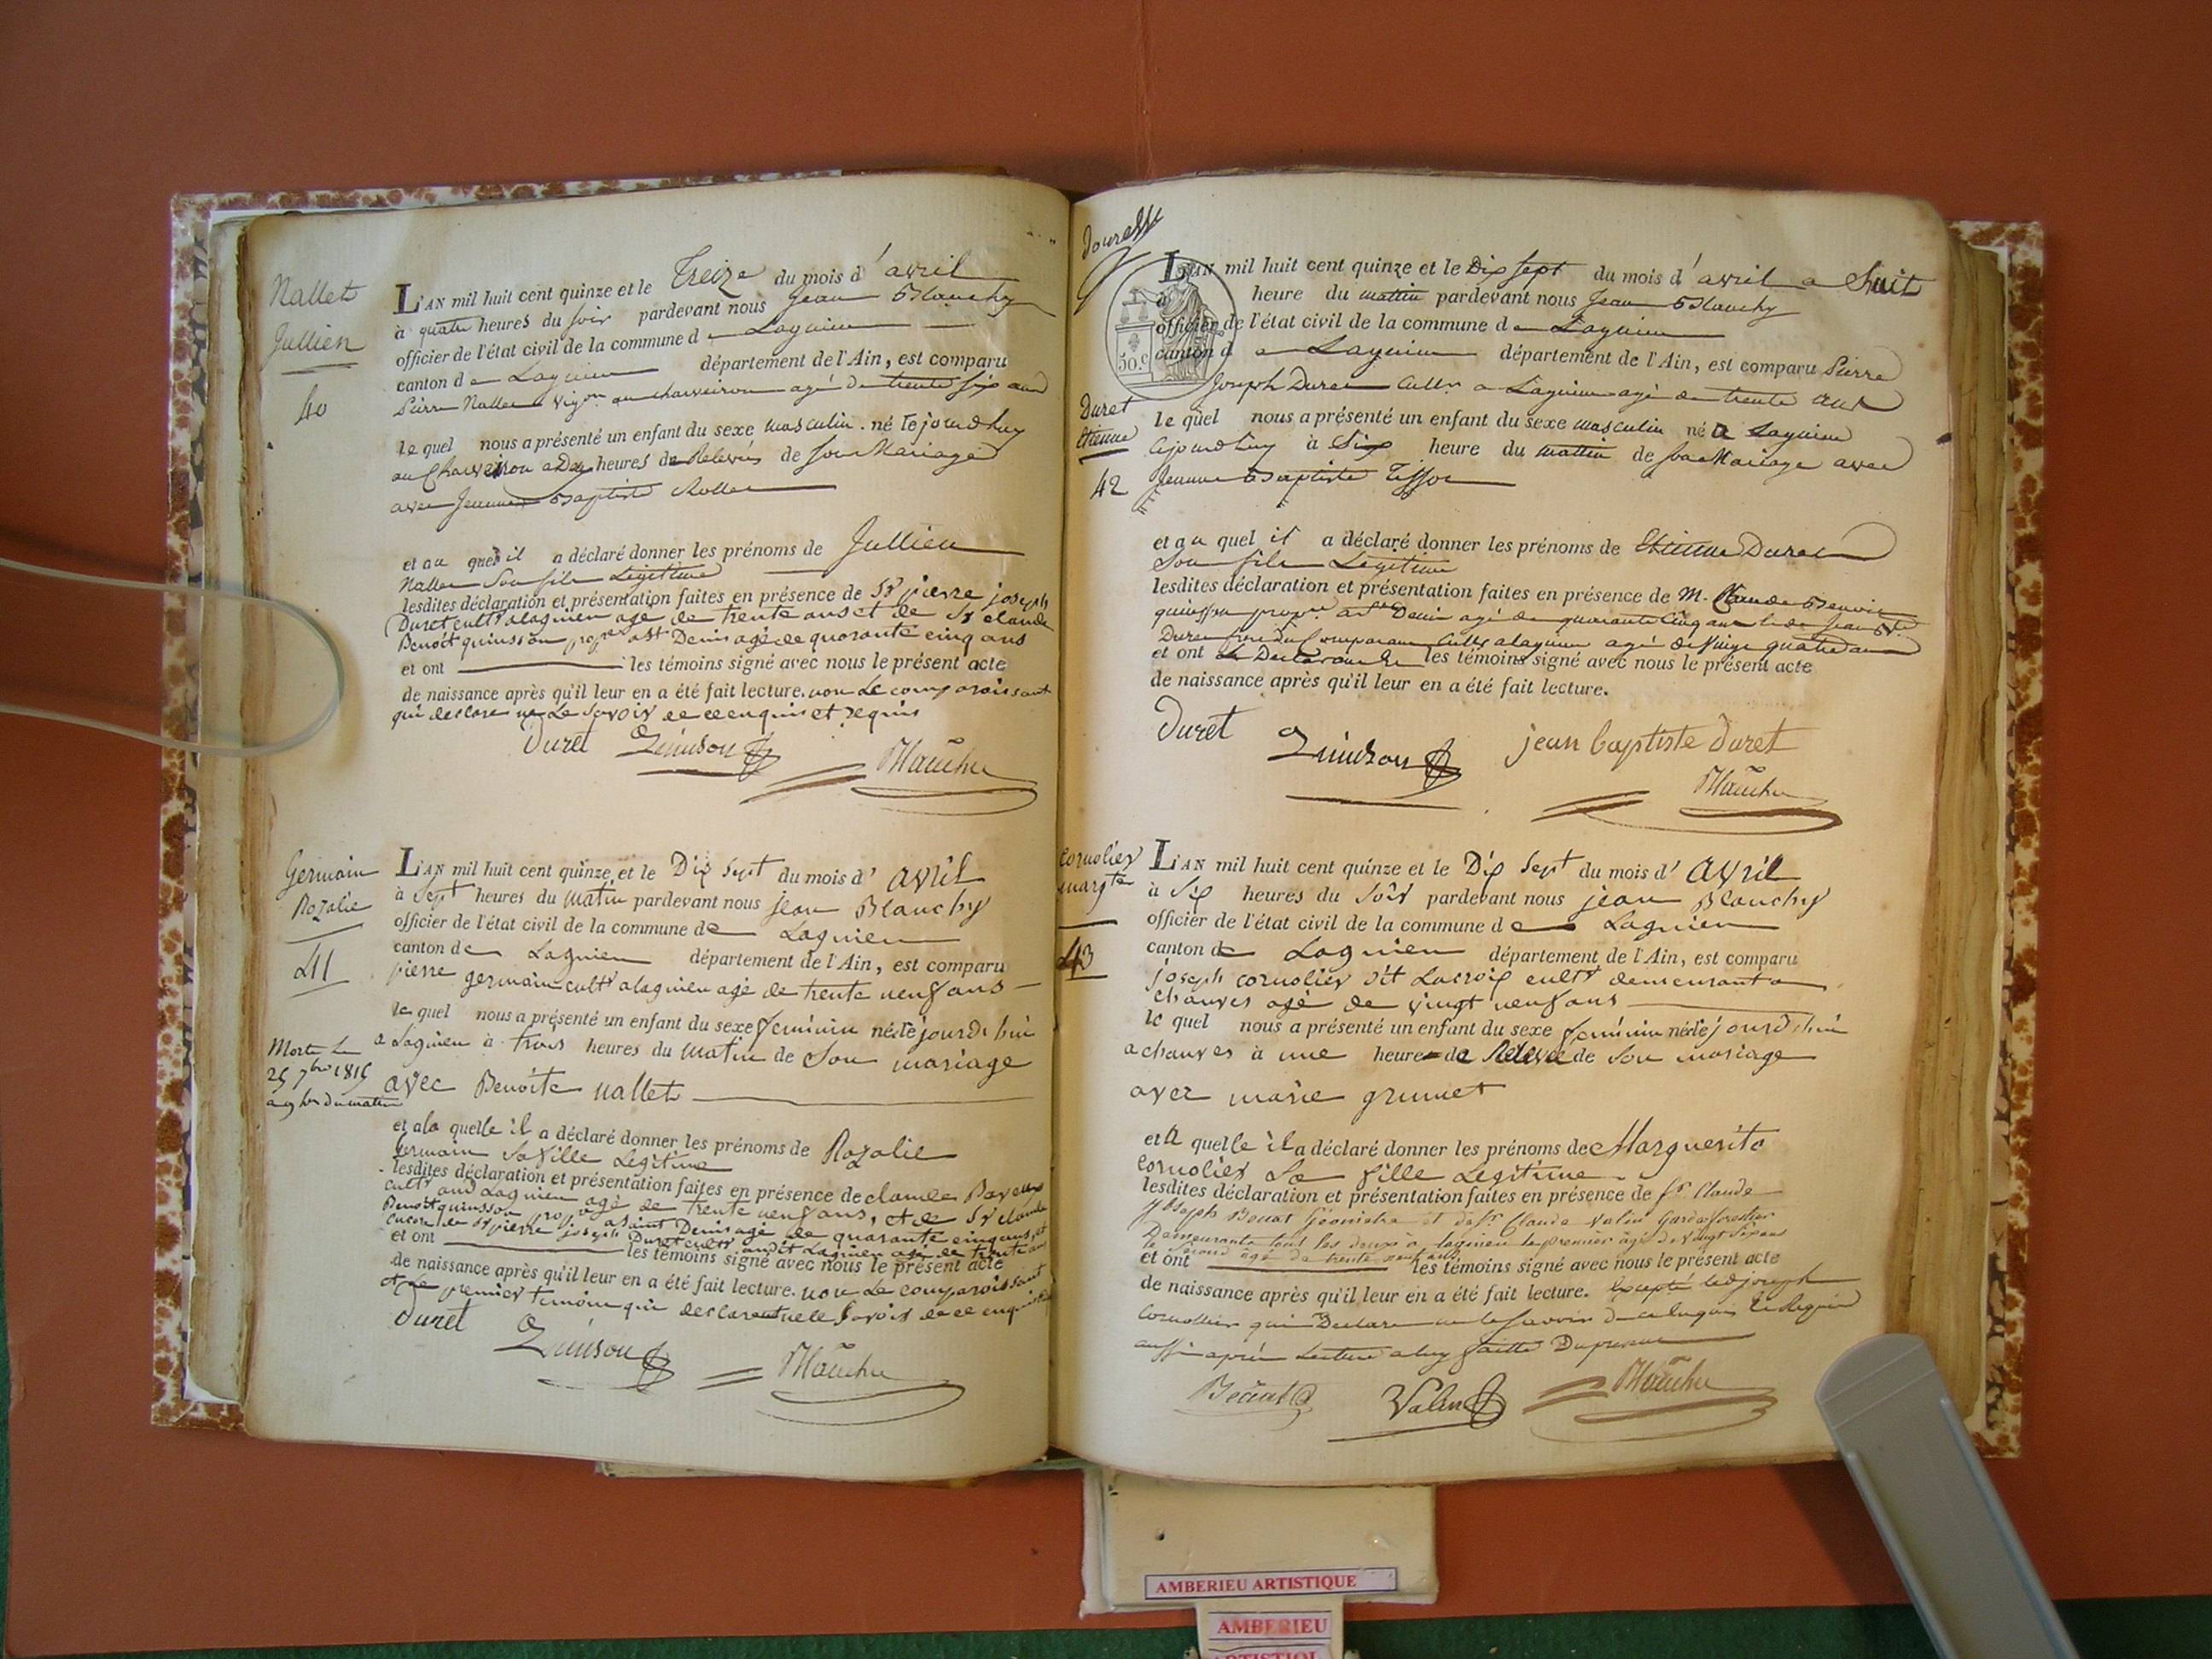 Nallet
Jullien
40
L'AN mil huit cent quinze et le Treize du mois d'avril
à quatre heures du soir pardevant nous Jean Blanchy
officier de l'état civil de la commune de Lagnieu
canton de Lagnieu département de l'Ain, est comparu
Pierre Nallet Vigon au charveiron agé de trente six ans
le quel nous a présenté un enfant du sexe masculin né cejourdhuy
au Charveiron a Dix heures de Relevés de son Mariage
avec Jeanne Baptiste Rollet
et au quel il a déclaré donner les prénoms de Jullien
Nallet Son fils Legitime
lesdites déclaration et présentation faites en présence de Sr pierre joseph
Duret cultr a lagnieu age de trente ans et de Sr claude
Benoit quinsson propre a st Denis agé de quarante cinq ans
et ont les témoins signé avec nous le présent acte
de naissance après qu'il leur en a été fait lecture. non Le comparoissant
qui declare ne Le Savoir de ce enquis et requis
Duret Quinson Blanchy
Germain
Rozalie
41
Morte Le
25 7bre 1815
a 9 hrs du matin
L'AN mil huit cent quinze et le Dix Sept du mois d'avril
à Sept heures du Matin pardevant nous jean Blanchy
officier de l'état civil de la commune de Lagnieu
canton de Lagnieu département de l'Ain, est comparu
pierre germain cultr a lagnieu agé de trente neuf ans
le quel nous a présenté un enfant du sexe feminin né cejourdhui
a Lagnieu à trois heures du Matin de Son mariage
avec Benoite nallet
et a la quelle il a déclaré donner les prénoms de Rozalie
Germain Sa fille Legitime
lesdites déclaration et présentation faites en présence de claude
cultr aud Lagnieu agé de trente neuf ans, et de Sr claude
Benoit quinsson propre a Saint Denis agé de quarante cinq ans, et
encore de Sr pierre joseph Duret cultr audit Lagnieu age de trente ans
et ont les témoins signé avec nous le présent acte
de naissance après qu'il leur en a été fait lecture. non Le comparoissant
et Le premier temoin qui declarent ne le Savoir de ce enquis
Duret Quinson Blanchy
L'AN mil huit cent quinze et le Dix sept du mois d'avril a huit
heure du mattin pardevant nous Jean Blanchy
officier de l'état civil de la commune de Lagnieu
50.c
canton de Lagnieu département de l'Ain, est comparu Pierre
Joseph Duret Cultr a Lagnieu agé de trente ans
Duret
Etienne
42
le quel nous a présenté un enfant du sexe masculin né a Lagnieu
cejourdhuy à Six heure du mattin de son Mariage avec
Jeanne Baptiste Tissot
et au quel il a déclaré donner les prénoms de Etienne Duret
Son fils Legitime
lesdites déclaration et présentation faites en présence de M. Claude Benoit
quinsson propre a st Denis agé de quarante Cinq ans et de Jean Bte
Duret frere du Comparant Cultr a lagnieu agé de Vingt quatre ans
et ont le Declarant et les témoins signé avec nous le présent acte
de naissance après qu'il leur en a été fait lecture.
Duret Quinson jean baptiste duret
Blanchy
Cornolier
margte
43
L'AN mil huit cent quinze et le Dix Sept du mois d'avril
à Six heures du Soir pardevant nous jean Blanchy
officier de l'état civil de la commune de Lagnieu
canton de Lagnieu département de l'Ain, est comparu
joseph cornolier dit Lacroix cultr demeurant a
chanves agé de vingt neuf ans
le quel nous a présenté un enfant du sexe feminin né cejourdhui
a chanves à une heure de Relevée de Son mariage
avec marie grumet
et a quelle il a déclaré donner les prénoms de Marguerite
Cornolier Sa fille Legitime
lesdites déclaration et présentation faites en présence de Sr Claude
Joseph Géomètre et de Sr Claude Valin Garde forestier
Demeurants tout les deux à lagnieu le premier âgé de Vingt Six ans
le Second âgé de trente ans
et ont les témoins signé avec nous le présent acte
de naissance après qu'il leur en a été fait lecture. Excepté led joseph
Cornollier qui Declare ne le Savoir de ce Enquis et Requis
aussi après Lecture a luy faitte Du présent
Valin Blanchy
AMBERIEU ARTISTIQUE
AMBERIEU
ARTISTIQU